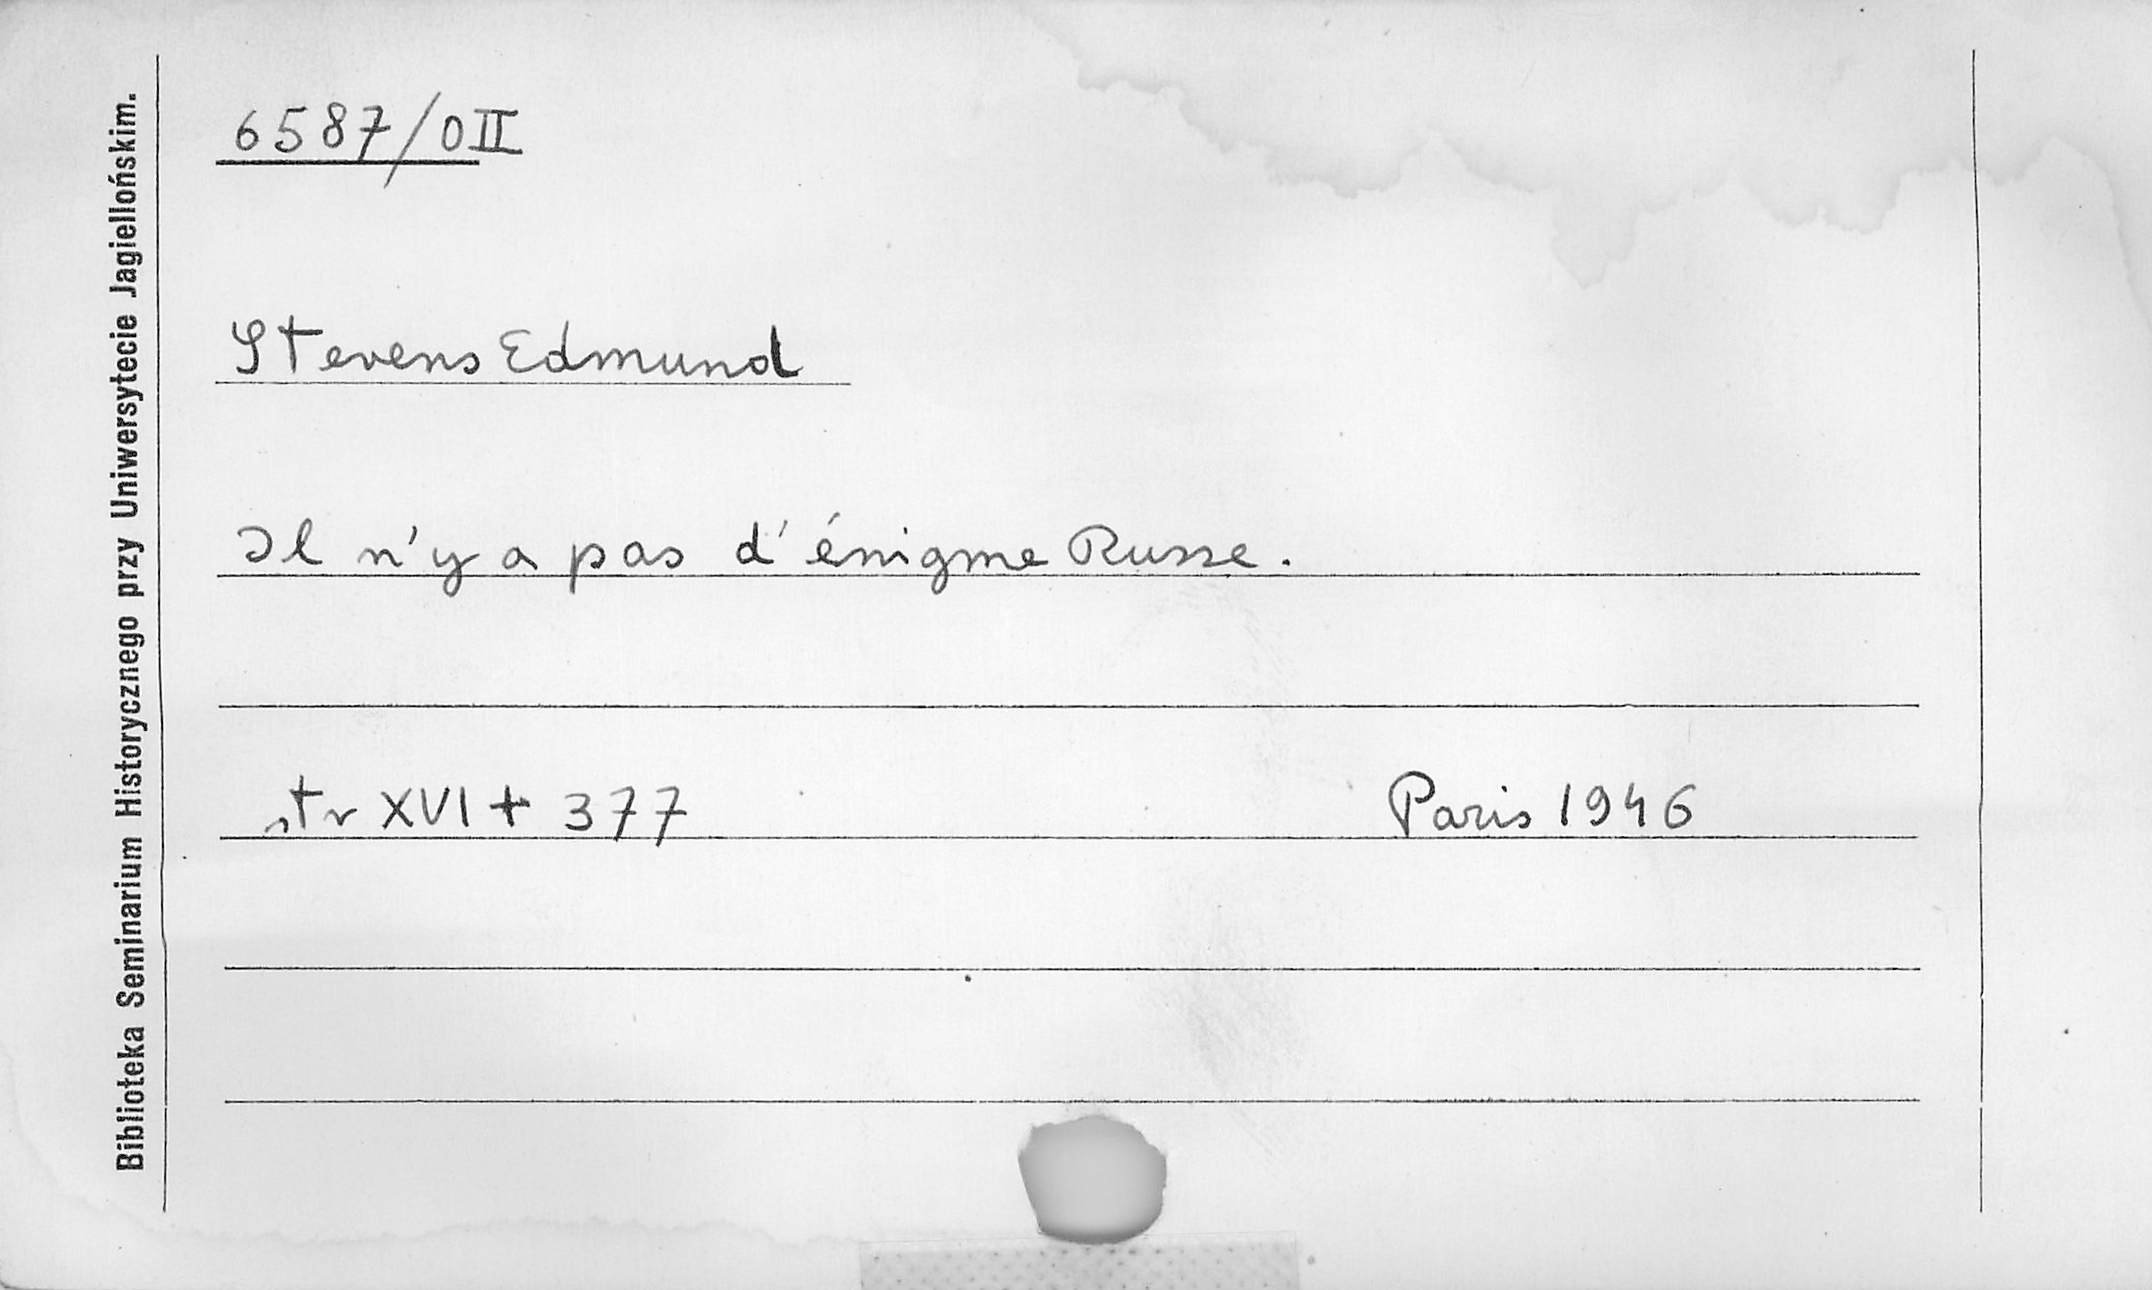 Biblioteka Seminarium Historycznego przy Uniwersytecie Jagiellońskim.
6587/OII
Stevens Edmund
Il n'y a pas d'énigme Russe.
str XVI + 377 Paris 1946